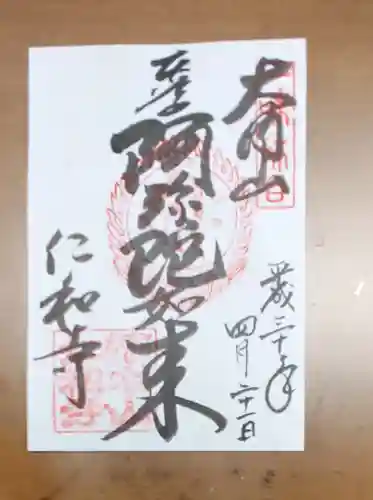 大内山
平成三十年
四月二十一日
阿弥陀如来
仁和寺